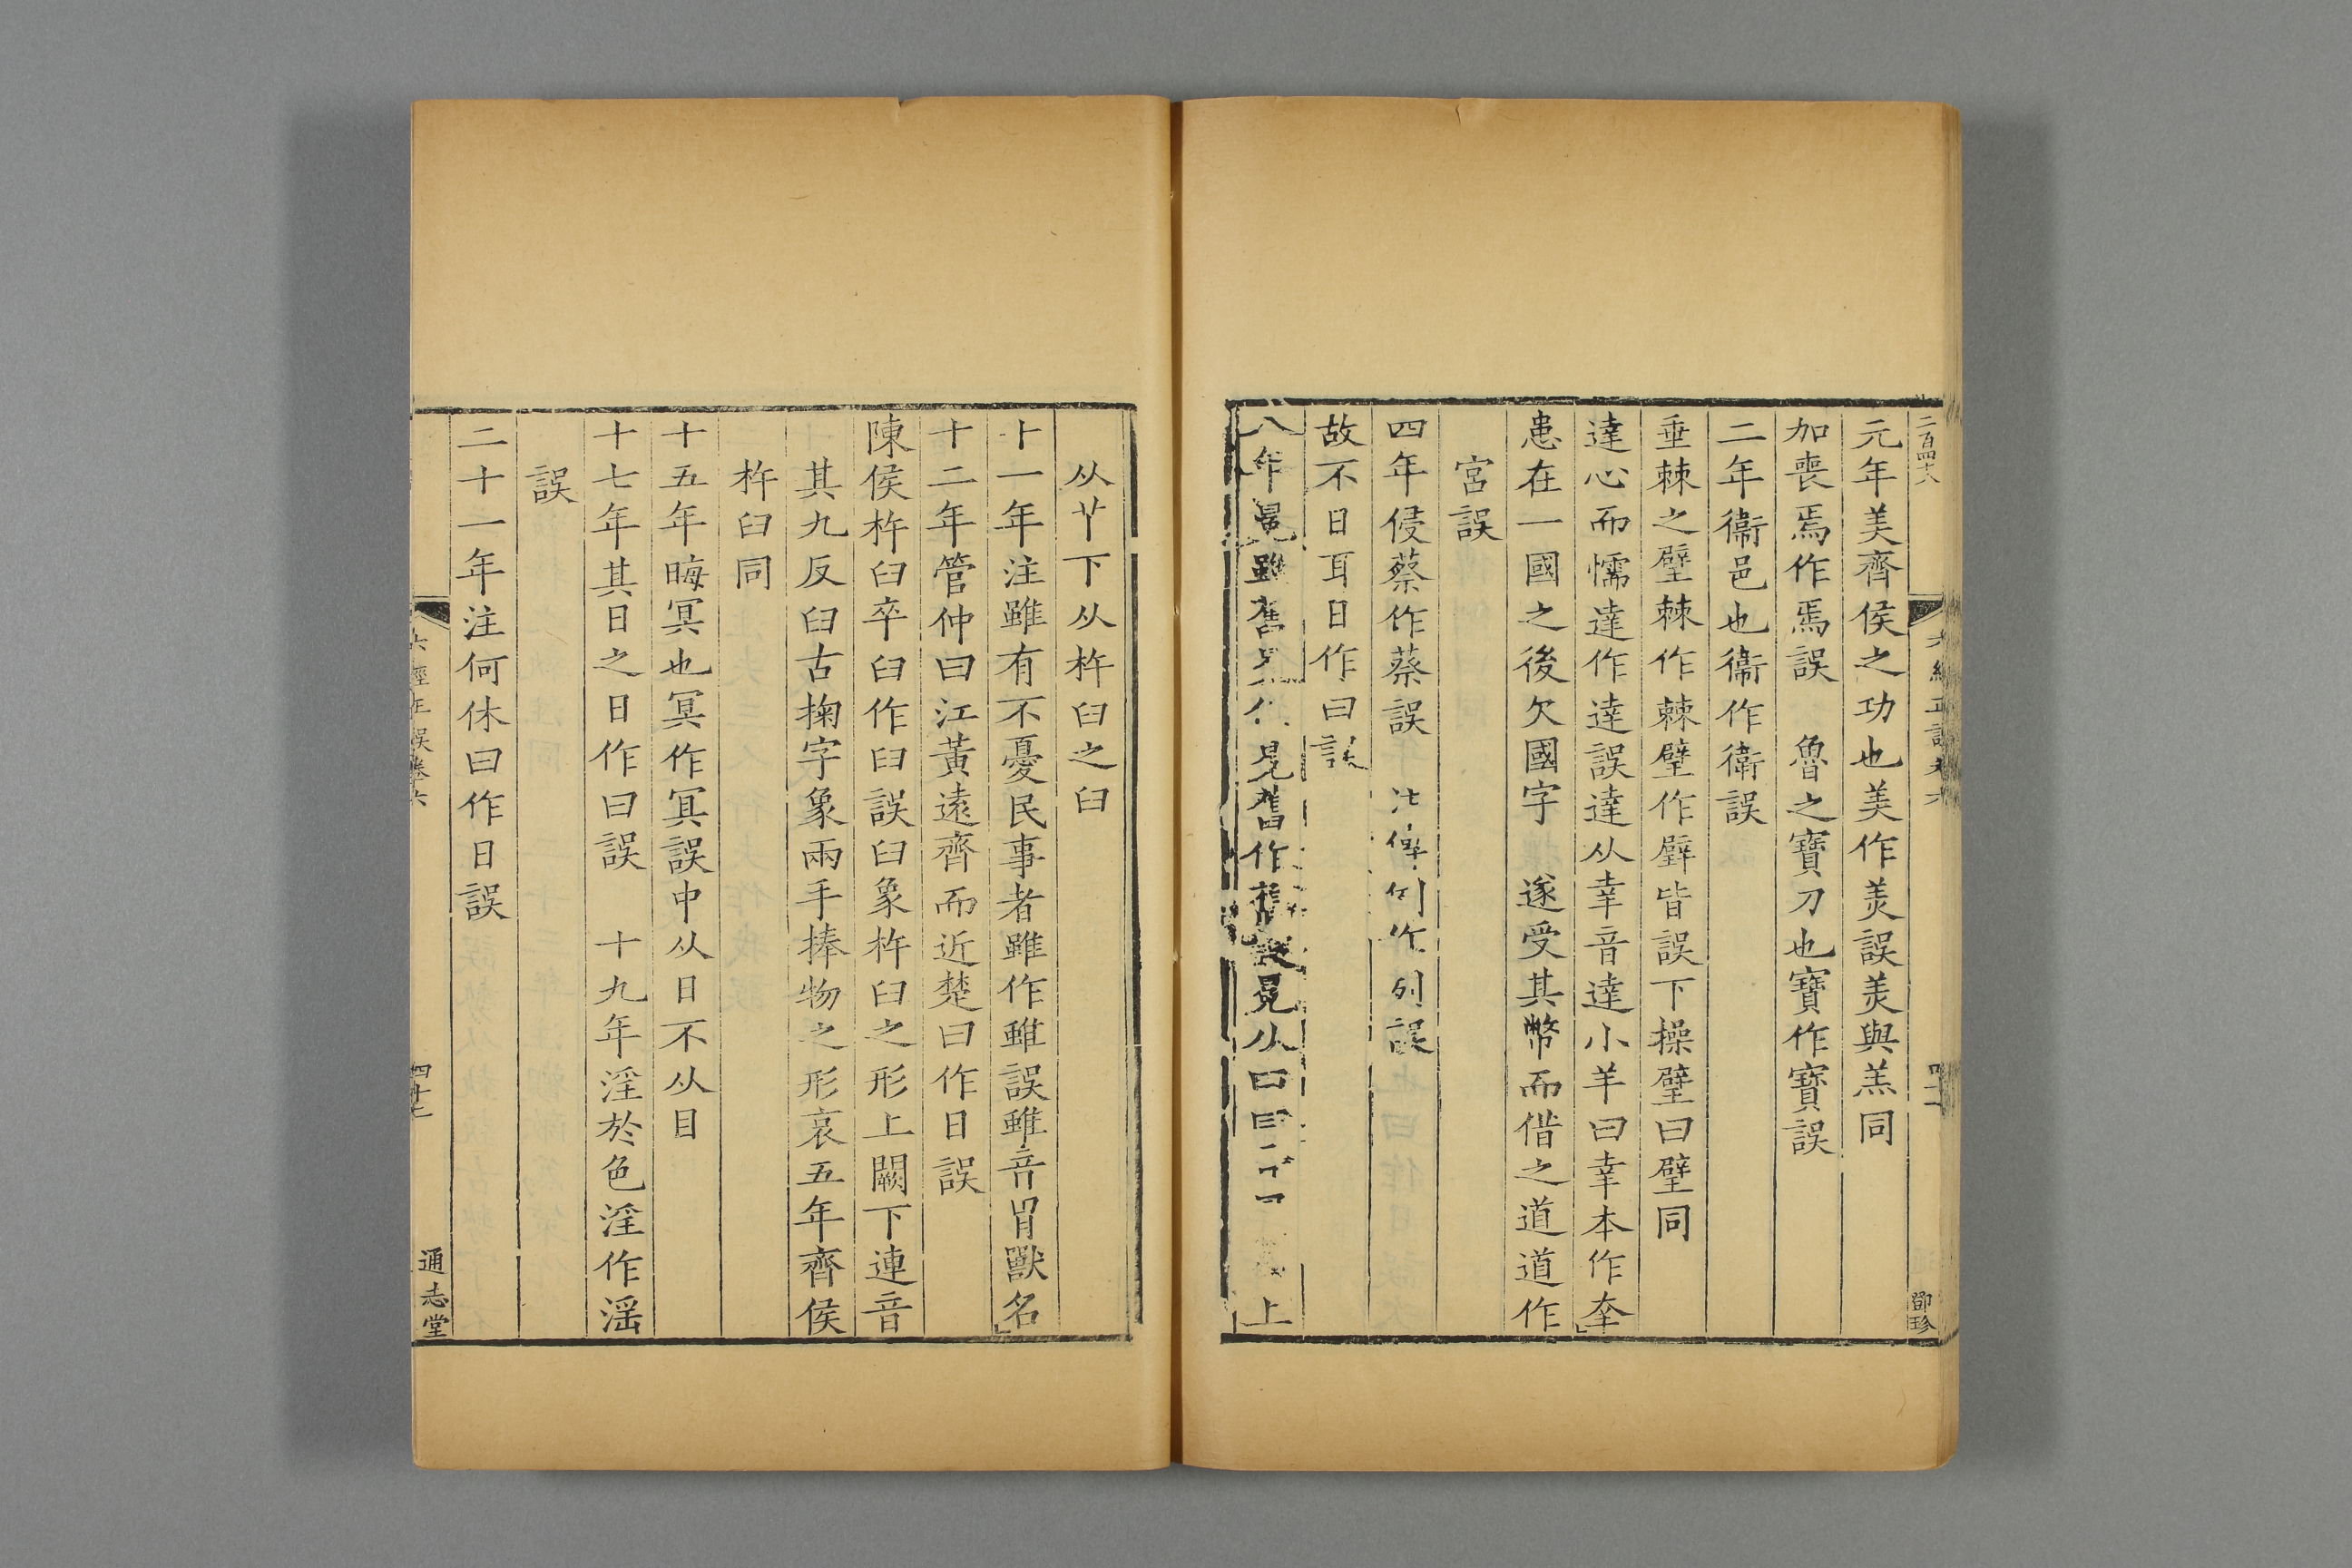 二百四十八
六經正誤卷六
邵珍
元年美齊侯之功也美作羙誤羙與羔同
加喪焉作焉誤　魯之寶刀也寶作寳誤
二年衞邑也衞作衛誤
垂棘之璧棘作棘璧作壁皆誤下操璧曰璧同
達心而懦達作達誤達从幸音達小羊曰幸本作羍
患在一國之後欠國字　遂受其幣而借之道道作
宮誤
四年侵蔡作蔡誤　例作列誤
故不日耳日作曰誤
八年舊見舊作誤冕从曰上
从艹下从杵臼之臼
十一年注雖有不憂民事者雖作雖誤雖音胃獸名
十二年管仲曰江黃遠齊而近楚曰作日誤
陳侯杵臼卒臼作臼誤臼象杵臼之形上闕下連音
其九反臼古掬字象兩手捧物之形哀五年齊侯
杵臼同
十五年晦冥也冥作冥誤中从日不从目
十七年其日之日作曰誤　十九年淫於色淫作滛
誤
二十一年注何休曰作日誤
六經正誤卷六
四十七
通志堂